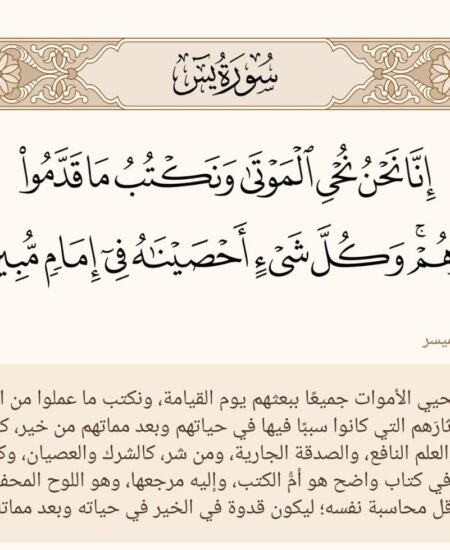 سُورَةُ يسٓ
إِنَّا نَحْنُ نُحْىِ ٱلْمَوْتَىٰ وَنَكْتُبُ مَا قَدَّمُوا۟
وَكُلَّ شَىْءٍ أَحْصَيْنَـٰهُ فِىٓ إِمَامٍ
حيي الأموات جميعًا ببعثهم يوم القيامة، ونكتب ما عملوا من
ثارَهم التي كانوا سببًا فيها في حياتهم وبعد مماتهم من خير،
العلم النافع، والصدقة الجارية، ومن شر، كالشرك والعصيان،
في كتاب واضح هو أمُّ الكتب، وإليه مرجعها، وهو اللوح
قل محاسبة نفسه؛ ليكون قدوة في الخير في حياته وبعد